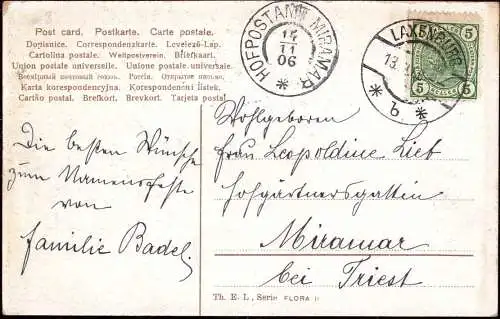 Post card. Postkarte. Carte postale.
Dopisnice. Correspondenzkarte. Levelező-Lap.
Cartolina postale. Weltpostverein. Briefkaart.
Union postale universelle. Unione postale universale.
Всемірный почтовый союзъ. Россія. Открытое письмо.
Karta korespondencyjna. Korespondenční lístek.
Cartão postal. Brefkort. Brevkort. Tarjeta postal.
HOFPOSTAMT MIRAMAR
14
11
06
LAXENBURG
13
b
5 5
5 5
Wohlgeboren
Frau Leopoldine Lieb
Hofgärtnersgattin
Miramar
bei Triest
Die besten Wünsche
zum Namensfeste
von
Familie Badel
Th. E. L., Serie FLORA II